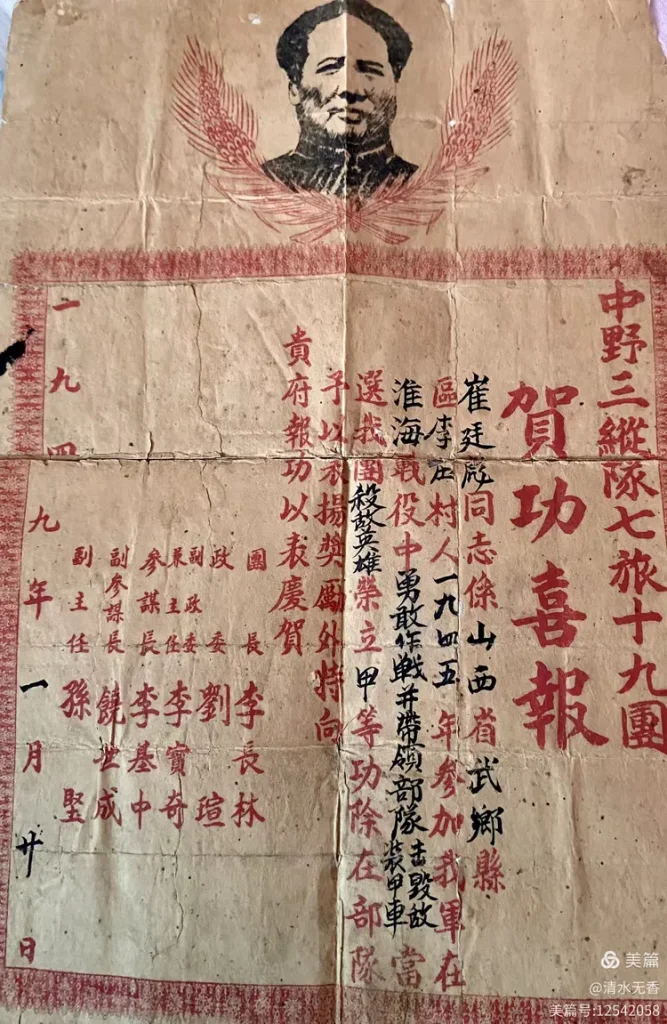 中野三縱隊七旅十九團
賀功喜報
崔廷彪同志係山西省武鄉縣
區李庄村人一九四五年參加我軍在
淮海戰役中勇敢作戰并帶領部隊击毀敵裝甲車當
選我團殺敵英雄榮立甲等功除在部隊
予以表揚獎勵外特向
貴府報功以表慶賀
團長李長林
政委劉瑄
副政委兼主任李寶奇
參謀長李基中
副參謀長饒世成
副主任孫堅
一九四九年一月廿日
美篇
@清水无香
美篇号:12542058